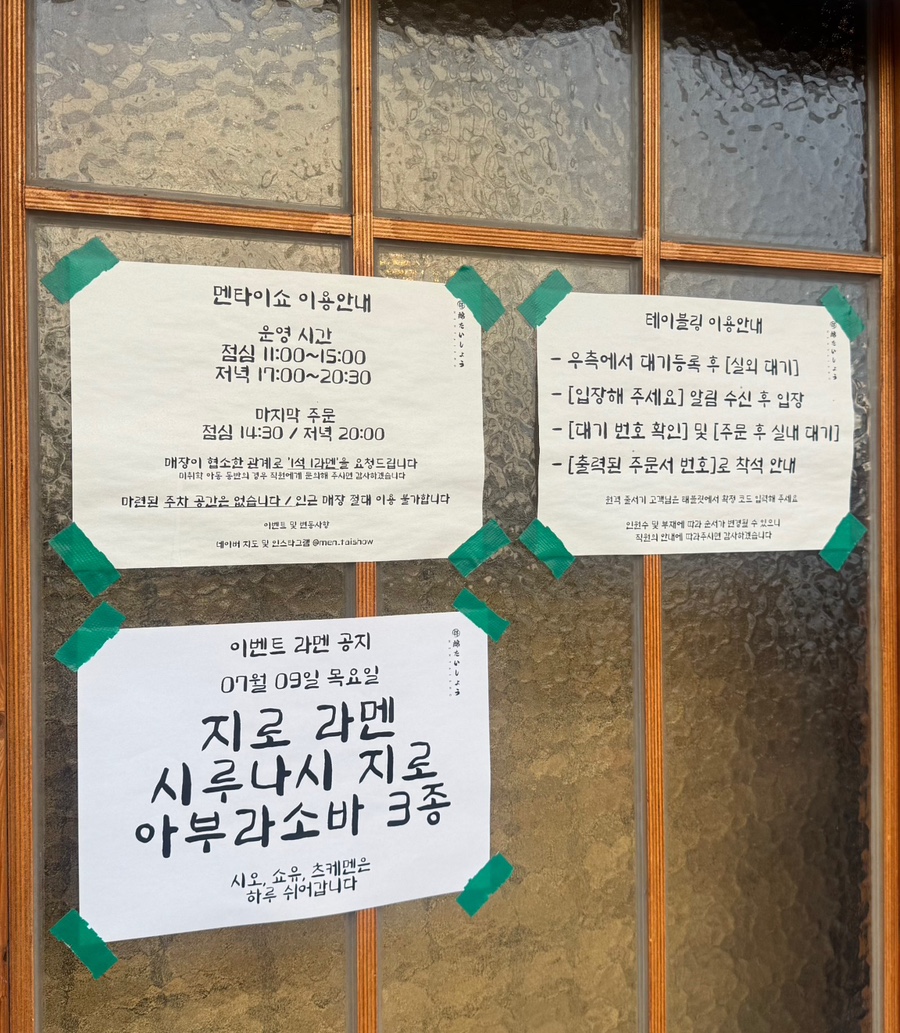 멘타이쇼 이용안내
운영 시간
점심 11:00~15:00
저녁 17:00~20:30
마지막 주문
점심 14:30 / 저녁 20:00
매장이 협소한 관계로 '1석 1라멘'을 요청드립니다
미취학 아동 동반의 경우 직원에게 문의해 주시면 감사하겠습니다
마련된 주차 공간은 없습니다 / 인근 매장 절대 이용 불가합니다
이벤트 및 변동사항
네이버 지도 및 인스타그램 @men.taishow
麺たいしょう
테이블링 이용안내
- 우측에서 대기등록 후 [실외 대기]
- [입장해 주세요] 알림 수신 후 입장
- [대기 번호 확인] 및 [주문 후 실내 대기]
- [출력된 주문서 번호]로 착석 안내
원격 줄서기 고객님은 태블릿에서 확정 코드 입력해 주세요
인원수 및 부재에 따라 순서가 변경될 수 있으니
직원의 안내에 따라주시면 감사하겠습니다
麺たいしょう
이벤트 라멘 공지
07월 09일 목요일
지로 라멘
시루나시 지로
아부라소바 3종
시오, 쇼유, 츠케멘은
하루 쉬어갑니다
麺たいしょう